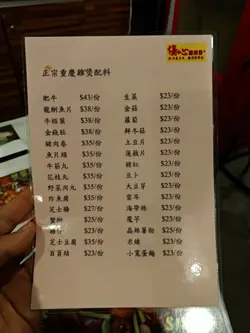 正宗重慶雞煲配料
肥牛 $43/份 生菜 $23/份
龍脷魚片 $38/份 金菇 $23/份
牛栢葉 $38/份 蘿蔔 $23/份
金錢肚 $38/份 鮮冬菇 $23/份
豬肉卷 $35/份 土豆片 $23/份
魚片頭 $35/份 蓮藕片 $23/份
牛筋丸 $35/份 豬紅 $23/份
花枝丸 $35/份 豆卜 $23/份
野菜肉丸 $35/份 大豆芽 $23/份
炸魚腐 $35/份 雲耳 $23/份
芝士腸 $27/份 海帶絲 $23/份
蟹柳 $25/份 魔芋 $23/份
腸仔 $25/份 晶絲薯粉 $23/份
芝士豆腐 $35/份 米線 $23/份
百頁結 $23/份 小寬蛋麵 $23/份